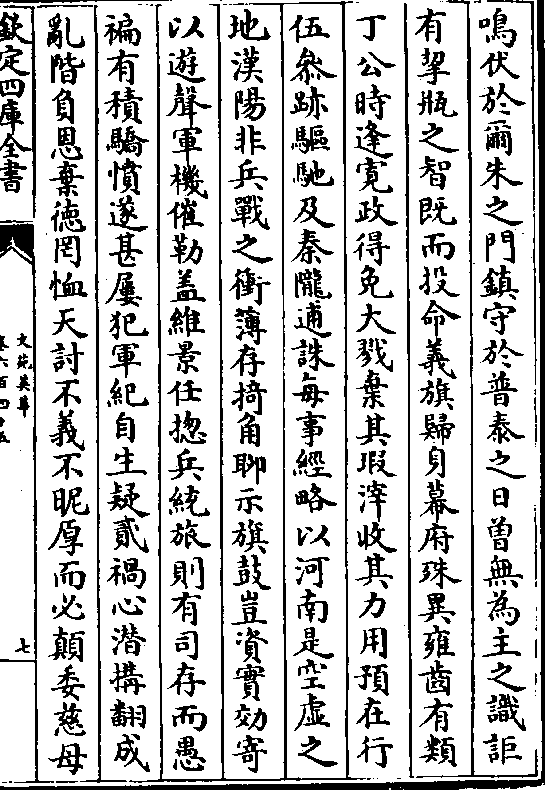 鳴伏於爾朱之門鎮守於普泰之日曽無為主之識詎
有挈瓶之智既而投命義旗歸身幕府殊異雍齒有類
丁公時逢寛政得免大戮棄其瑕滓收其力用預在行
伍叅跡驅馳及秦隴逋誅每事經略以河南是空虛之
地漢陽非兵戰之衝薄存掎角聊示旗鼓豈資實効寄
以遊聲軍機催勒盖維景任揔兵統旅則有司存而愚
褊有積驕憤遂甚屢犯軍紀自生疑貳禍心潛搆翻成
亂階負恩棄徳罔恤天討不義不昵厚而必顛委慈母
欽定四庫全書
文苑英華
卷六百四十五
七